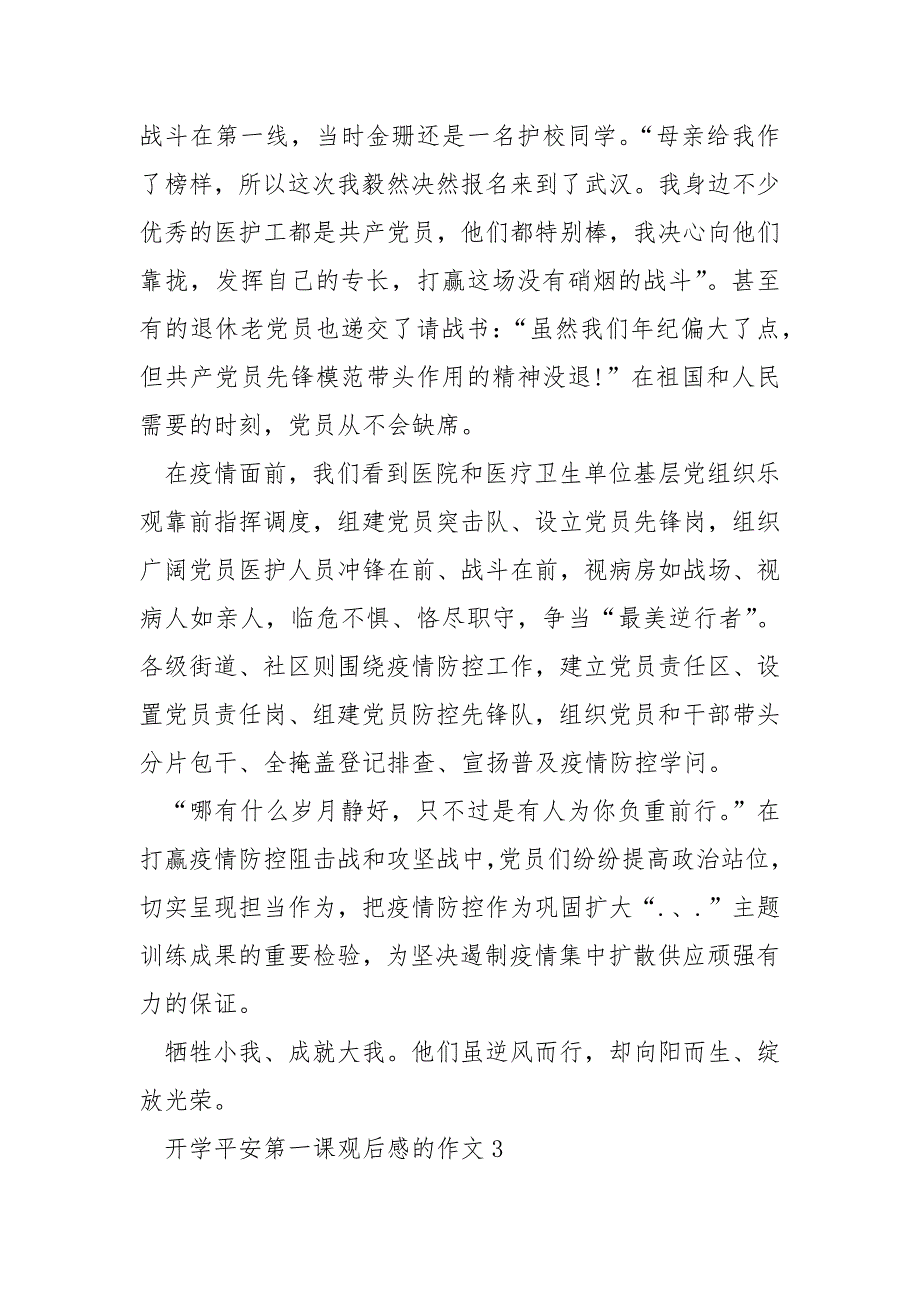 战斗在第一线，当时金珊还是一名护校同学。“母亲给我作
了榜样，所以这次我毅然决然报名来到了武汉。我身边不少
优秀的医护工都是共产党员，他们都特别棒，我决心向他们
靠拢，发挥自己的专长，打赢这场没有硝烟的战斗”。甚至
有的退休老党员也递交了请战书：“虽然我们年纪偏大了点，
但共产党员先锋模范带头作用的精神没退!”在祖国和人民
需要的时刻，党员从不会缺席。
在疫情面前，我们看到医院和医疗卫生单位基层党组织乐
观靠前指挥调度，组建党员突击队、设立党员先锋岗，组织
广阔党员医护人员冲锋在前、战斗在前，视病房如战场、视
病人如亲人，临危不惧、恪尽职守，争当“最美逆行者”。
各级街道、社区则围绕疫情防控工作，建立党员责任区、设
置党员责任岗、组建党员防控先锋队，组织党员和干部带头
分片包干、全掩盖登记排查、宣扬普及疫情防控学问。
“哪有什么岁月静好，只不过是有人为你负重前行。”在
打赢疫情防控阻击战和攻坚战中，党员们纷纷提高政治站位，
切实呈现担当作为，把疫情防控作为巩固扩大“.、.”主题
训练成果的重要检验，为坚决遏制疫情集中扩散供应顽强有
力的保证。
牺牲小我、成就大我。他们虽逆风而行，却向阳而生、绽
放光荣。
开学平安第一课观后感的作文 3